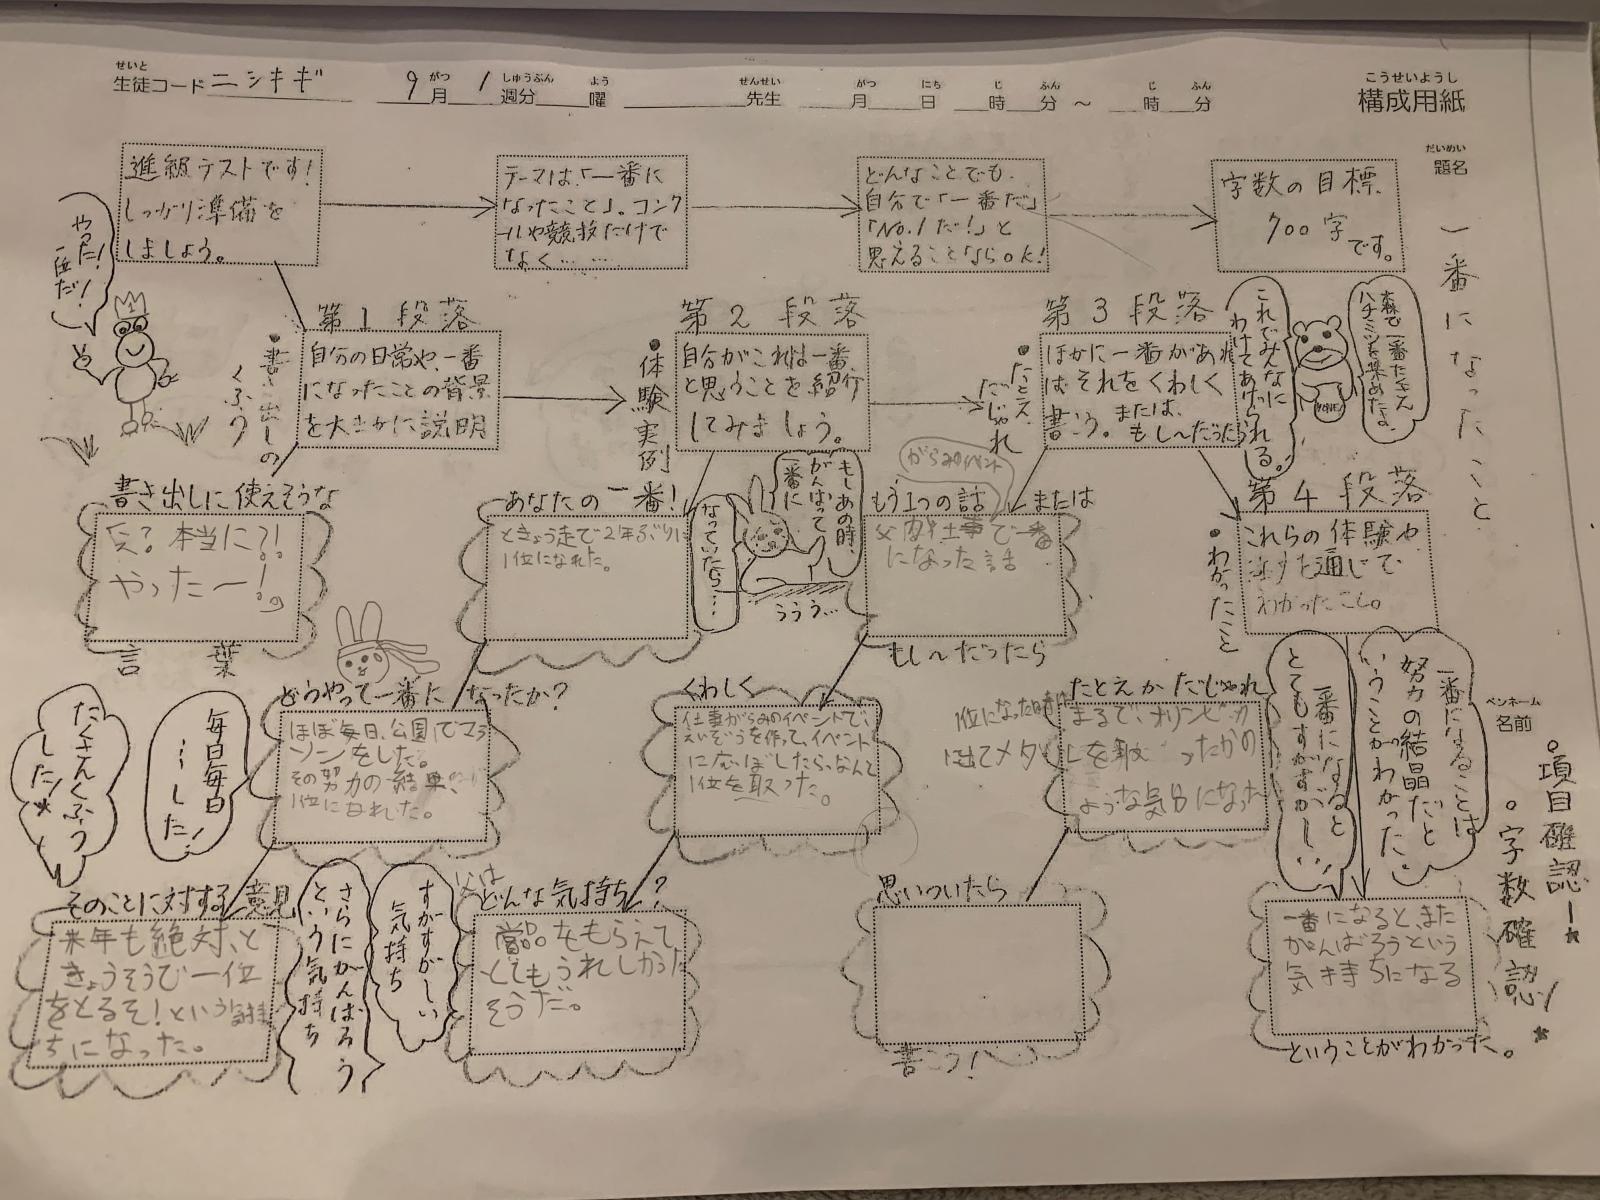 せいと
生徒コード ニシキギ
がつ しゅうぶん よう せんせい がつ にち じ ふん じ ふん
9月 1週分 曜 先生 月 日 時 分 ~ 時 分
こうせいようし
構成用紙
だいめい
題名
一番になったこと
ペンネーム
名前
。項目確認!★
。字数確認!★
進級テストです!
しっかり準備を
しましょう。
テーマは、「一番に
なったこと」。コンク
ールや競技だけで
なく……
どんなことでも、
自分で「一番だ」
「No.1だ!」と
思えることならOK!
字数の目標
700字
です。
やった!
一位だ!
第1段落
自分の日常や、一番
になったことの背景
を大まかに説明
・書き出しの
くふう
第2段落
自分がこれは一番
と思うことを紹介
してみましょう。
・体験実例
第3段落
ほかに一番があれ
ばそれをくわしく
書こう。または、
もし〜だったら
・たとえ
だじゃれ
森で一番たくさん
ハチミツを集めたよ。
これでみんなに
わけてあげられる。
第4段落
これらの体験や
話を通じて
わかったこと。
・わかったこと
書き出しに使えそうな
え?本当に?!
やったー!。
言葉
あなたの一番!
ときょう走で2年ぶりに
1位になれた。
もしあの時、
がんばって
一番に
なっていたら…
ううう…
がらみのイベント
もう1つの話 または
父が仕事で一番
になった話
もし〜だったら
どうやって一番になったか?
ほぼ毎日、公園でマラ
ソンをした。
その努力の結果、
1位になれた。
毎日毎日
…した!
たくさんくふう
した★
くわしく
仕事がらみのイベントで、
1位を取った。
たとえかだじゃれ
まるで、オリンピック
ような気分になった
一番になることは
努力の結晶だと
いうことがわかった。
一番になると
とてもすがすがしい!
そのことに対する意見
来年も絶対、と
きょうそうで一位
をとるぞ!という気持
ちになった。
さらにがんばろう
という気持ち
すがすがしい
気持ち
父は
どんな気持ち?
賞品をもらえて
とてもうれしかった
そうだ。
思いついたら
書こう!
一番になると、また
がんばろうという
気持ちになる
ということがわかった。